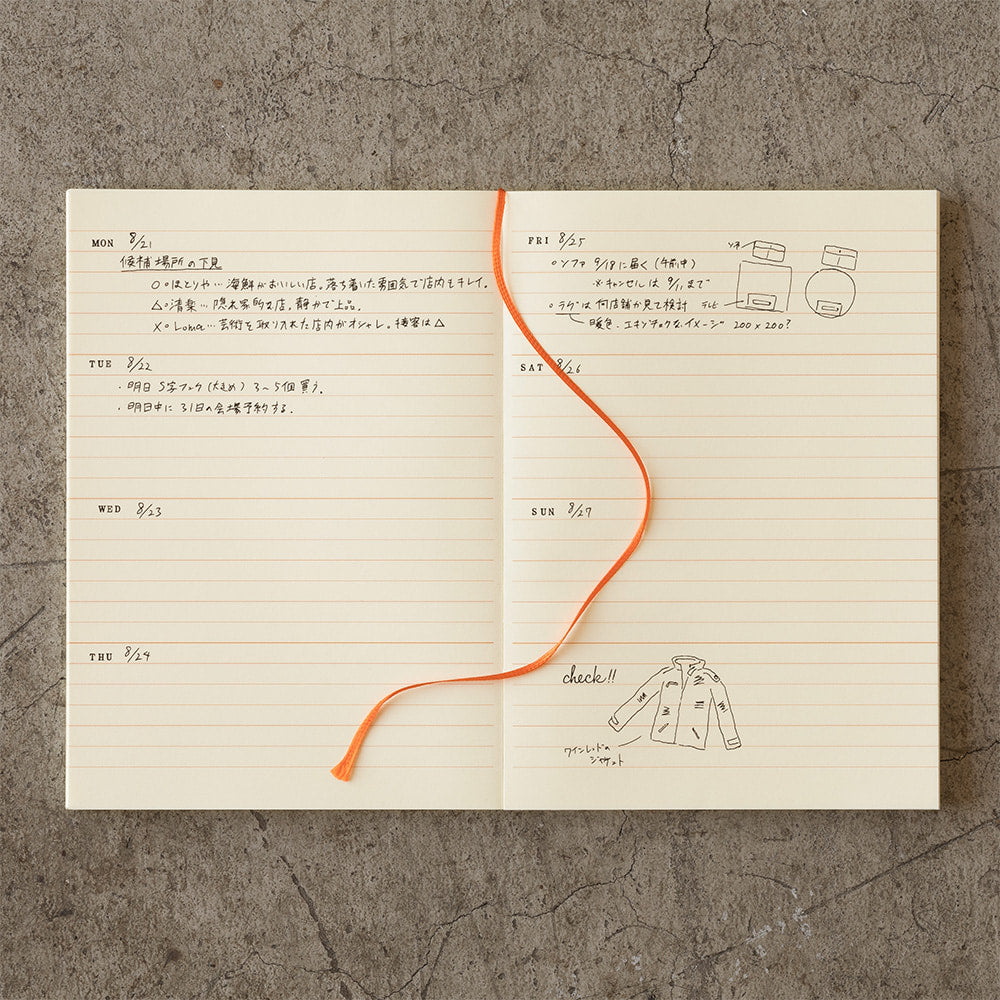 MON 8/21
候補場所の下見
○・ほとりや… 海鮮がおいしい店。落ち着いた雰囲気で店内もキレイ。
△・清楽… 隠れ家的な店。静かで上品。
×・Loma… 芸術を取り入れた店内がオシャレ。接客は△
TUE 8/22
・明日 S字フック(大きめ) 3〜5個買う。
・明日中に 31日の会場予約する。
WED 8/23
THU 8/24
FRI 8/25
○ソファ 9/18に届く(午前中)
※キャンセルは 9/11まで
○ラグは何店舗か見て検討
暖色、エキゾチックなイメージ 200×200?
ソファ
テレビ
SAT 8/26
SUN 8/27
check!!
ワインレッドの
ジャケット